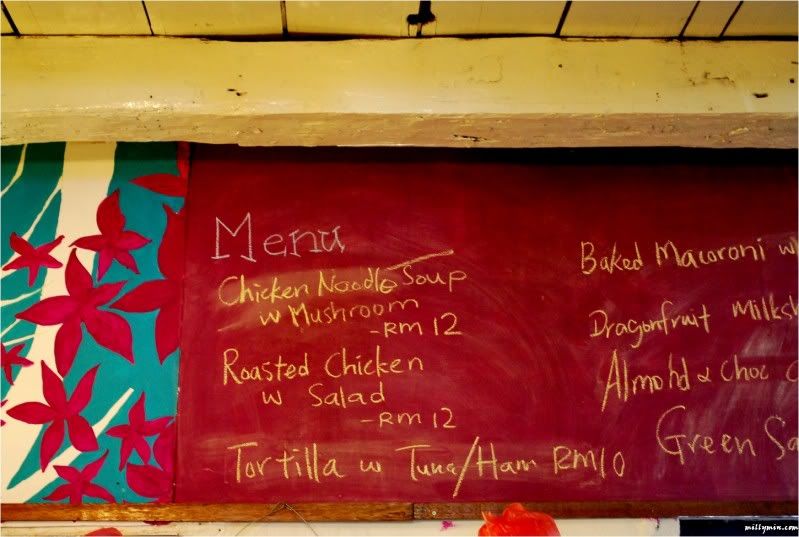 Menu
Chicken Noodle Soup
w Mushroom
-RM 12
Roasted Chicken
w Salad
-RM 12
Tortilla w Tuna/Ham RM10
Baked Macoroni
Dragonfruit
Almond & Choc
Green
millymin.com